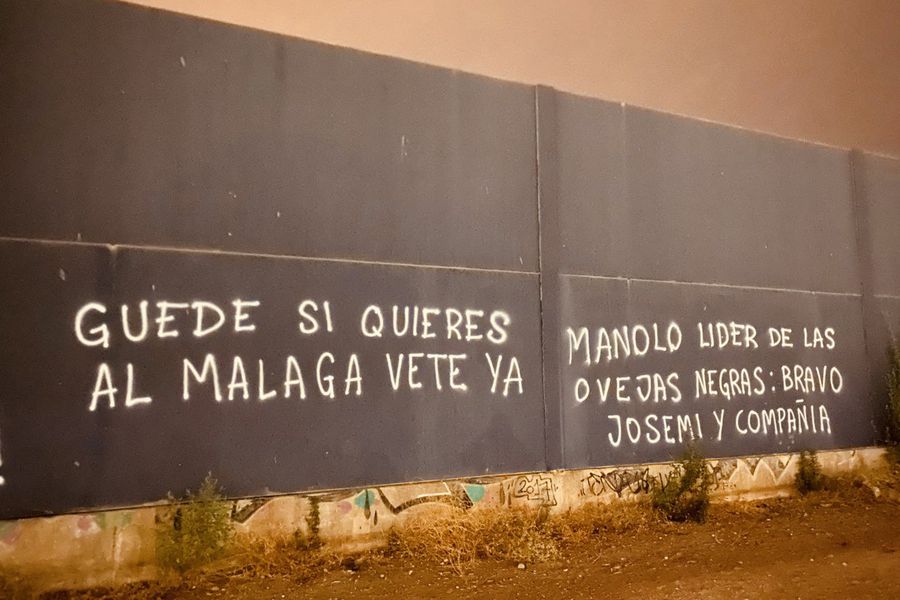 GUEDE SI QUIERES
AL MALAGA VETE YA
MANOLO LIDER DE LAS
OVEJAS NEGRAS: BRAVO
JOSEMI Y COMPAÑIA